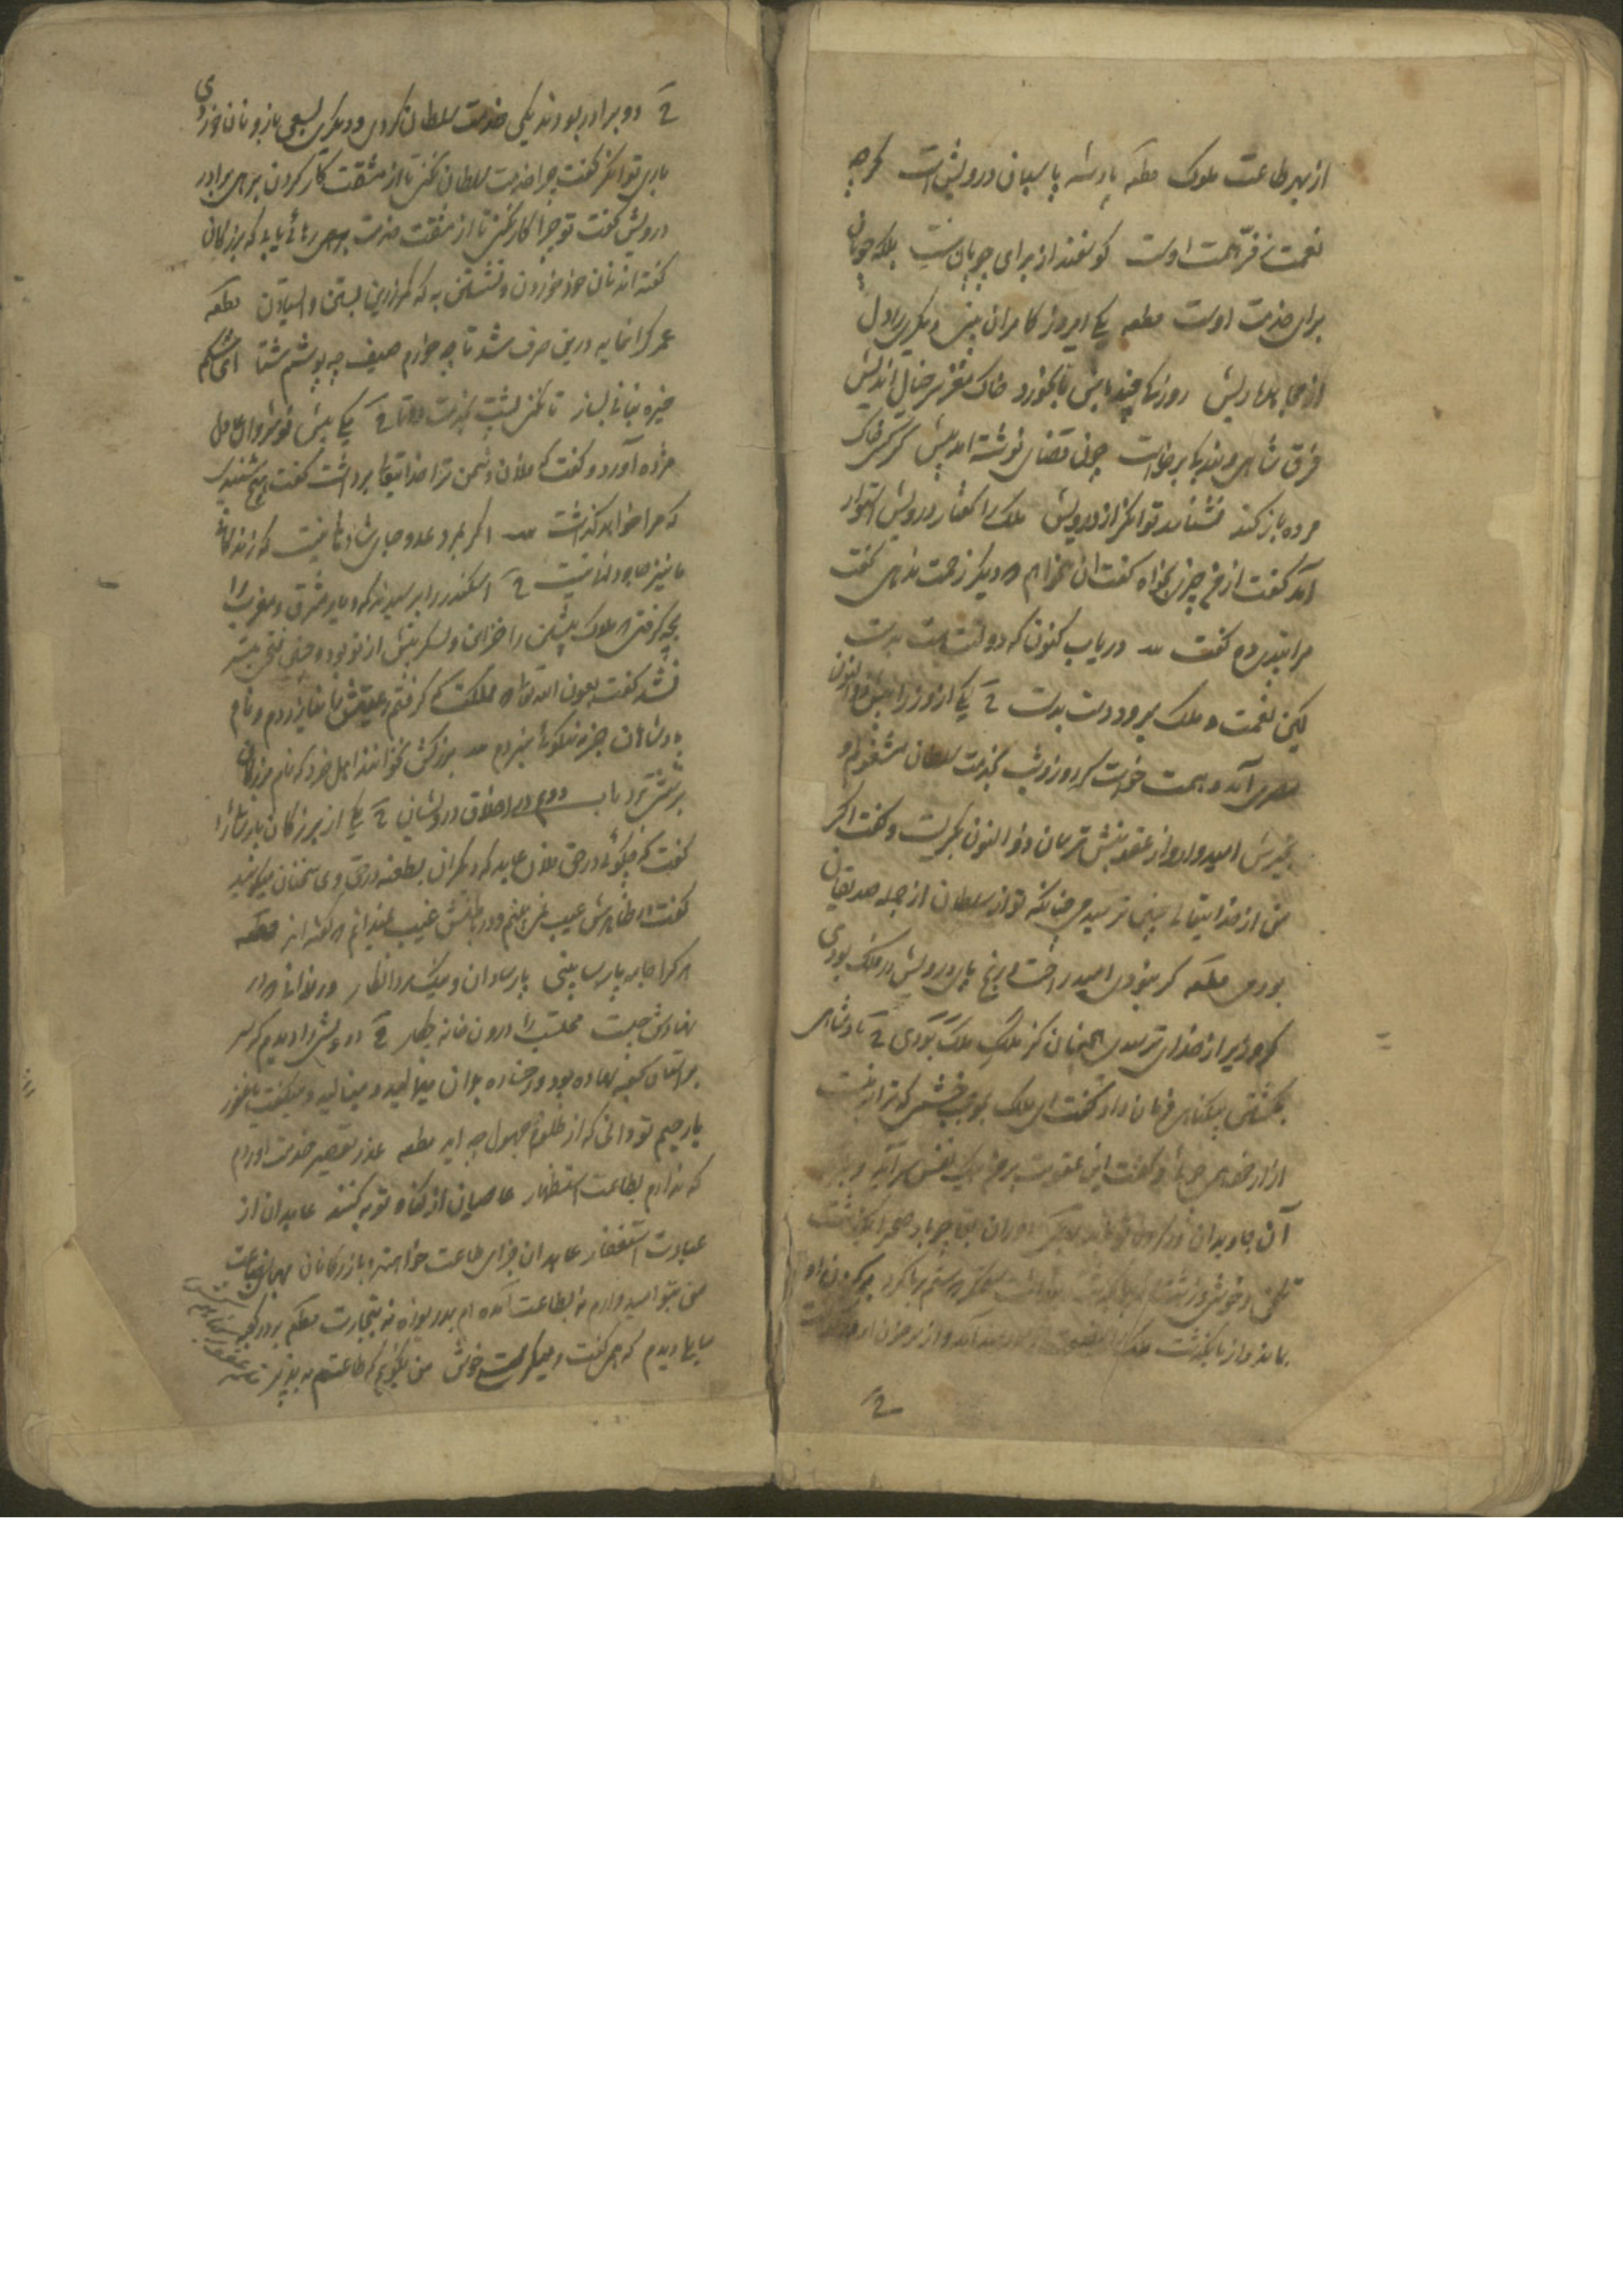 از بهر طاعت ملوک قطعه پادشه پاسبان درویش است گرچه
نعمت بفرّ همت اوست گوسفند از برای چوپان نیست بلکه چوپان
برای خدمت اوست قطعه یکی امروز کامران بینی دیگری را دل
از مجاهده ریش روزکی چند باش تا بخورد خاک مغز سر خیال اندیش
فرق شاهی و بندگی برخاست چون قضای نوشته آمد پیش گر کسی خاک
مرده باز کند نشناسد توانگر از درویش ملک را گفتار درویش استوار
آمد گفت از من چیزی بخواه گفت آن میخواهم که دیگر زحمت ندهی گفت
مرا پندی ده گفت دریاب کنون که دولتت هست بدست
لیکن نعمت و ملک میرود دست بدست یکی از وزرا پیش ذو النون
مصری آمد و همت خواست که روز و شب بخدمت سلطان مشغولم و
بخیرش امیدوار و از عقوبتش ترسان ذو النون بگریست و گفت اگر
من از خدایتعالی چنین ترسیدمی چنانکه تو از سلطان از جمله صدیقان
بودمی قطعه گر نبودی امید راحت و رنج پای درویش بر فلک بودی
گر وزیر از خدای ترسیدی همچنان کز ملک ملک بودی پادشاهی
بکشتن بیگناهی فرمان داد گفت ای ملک بموجب خشمی که ترا بر منست
آزار خود مجوی گفت این عقوبت بر من بیک نفس سر آید و بزه
آن جاویدان بر تو بماند دوران بقا چو باد صحرا بگذشت
تلخی و خوشی و زشت و زیبا بگذشت پنداشت ستمگر که ستم بر ما کرد بر گردن او
بماند و از ما بگذشت ملک را
دو برادر بودند یکی خدمت سلطان کردی و دیگری بسعی بازو نان خوردی
باری توانگر گفت چرا خدمت سلطان نکنی تا از مشقت کار کردن برهی برادر
درویش گفت تو چرا کار نکنی تا از مشقت خدمت رهائی یابی که بزرگان
گفته اند نان خود خوردن و نشستن به که کمر زرین بستن و ایستادن قطعه
عمر گرانمایه درین صرف شد تا چه خورم صیف چه پوشم شتا ای شکم
خیره بنانی بساز تا نکنی پشت بخدمت دوتا یکی پیش نوشیروان عادل
مژده آورد و گفت که فلان دشمن ترا خدایتعالی برداشت گفت هیچ شنیدی
که مرا خواهد گذاشت اگر بمرد عدو جای شادمانی نیست که زندگانی
ما نیز جاودانی نیست اسکندر را پرسیدند که دیار مشرق و مغرب را
بچه گرفتی که ملوک پیشین را خزاین و لشکر بیش از تو بوده چنین فتحی میسر
نشد گفت بعون الله تعالی هر مملکت که گرفتم رعیتش را نیازردم و نام
پادشاهان جز به نیکوئی نبردم بزرگش نخوانند اهل خرد که نام بزرگان
بزشتی برد باب دوم در اخلاق درویشان یکی از بزرگان پارسائی را
گفت که چگوئی در حق فلان عابد که دیگران بطعنه در حق وی سخنان میگویند
گفت در ظاهرش عیب نمی بینم و در باطنش غیب نمیدانم که گفته اند قطعه
هر کرا جامه پارسا بینی پارسا دان و نیک مرد انگار ور ندانی که در
نهادش چیست محتسب را درون خانه چکار درویشی را دیدم که سر
بر آستان کعبه نهاده بود و رخساره بر آن میمالید و مینالید و میگفت یا غفور
یا رحیم تو دانی که از ظلوم جهول چه آید قطعه عذر تقصیر خدمت آوردم
که ندارم بطاعت استظهار عاصیان از گناه توبه کنند عابدان از
عبادت استغفار عابدان جزای طاعت خواهند و بازرگانان بهای بضاعت
من بنده امیدوارم نه بطاعت آمده ام بدریوزه نه بتجارت قطعه بر در کعبه
سایلی دیدم که همی گفت و میگریست خوش من نگویم که طاعتم بپذیر